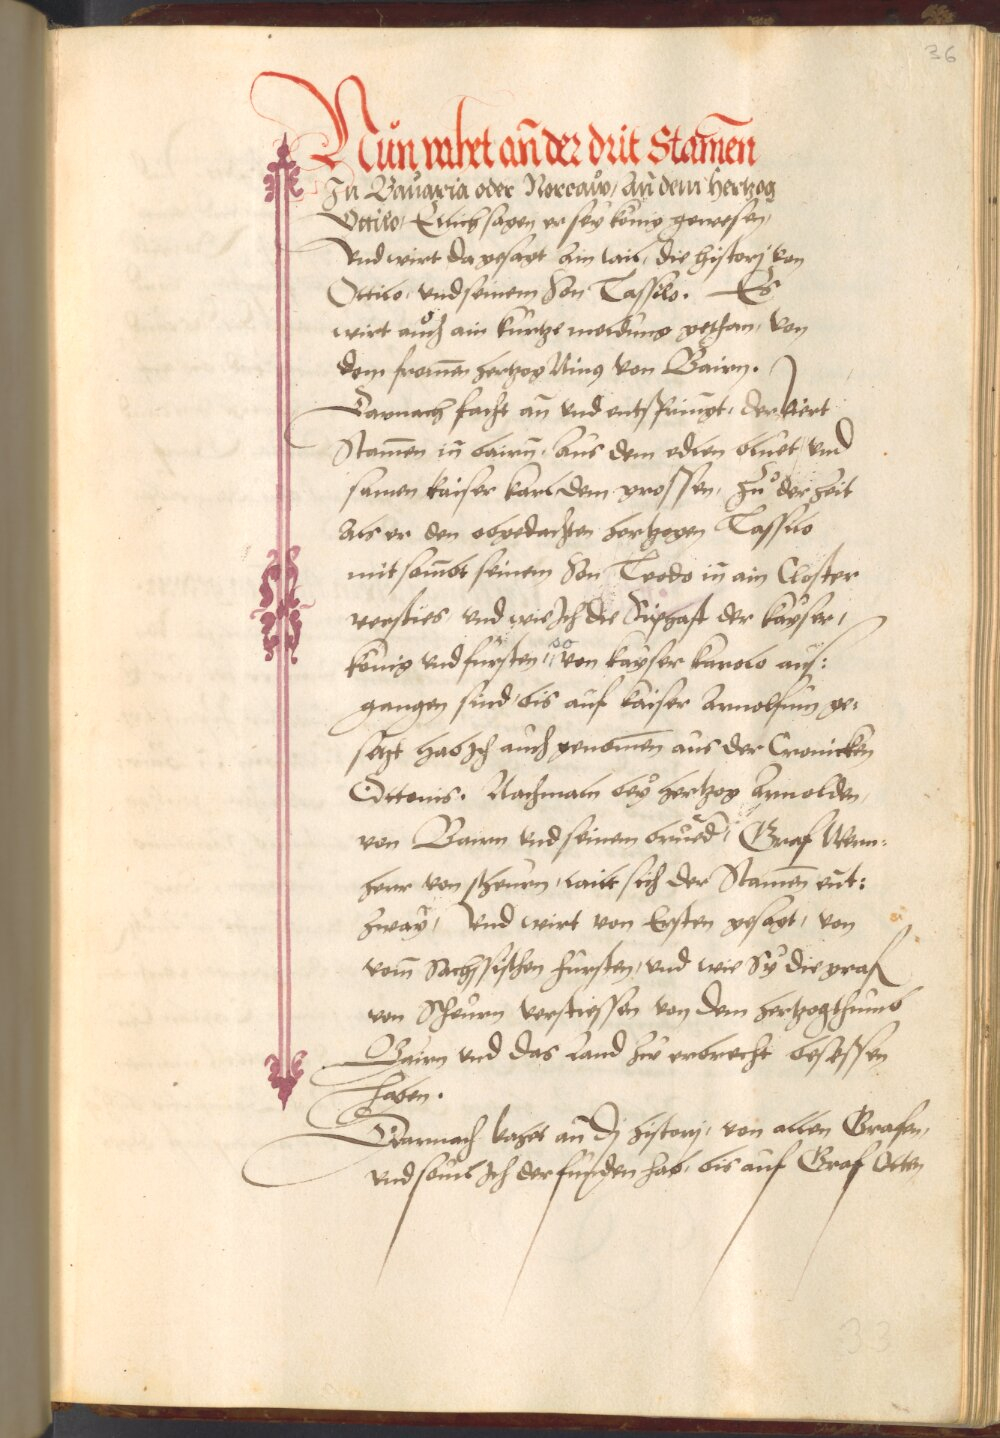 36
Nun vahet an̄ der drit Stam̄en
In Bavaria oder Norcaw, an dem hertzog
Ottilo, Etlich sagen er sey konig gewesen,
Vnd wirt da gesagt ain tail, die histori von
Ottilo, vnd seinem Son Tassilo. Es
wirt auch ain kurtze meldung gethan, von
dem from̄en hertzog Ning von Bairn.
Darnach facht an̄ vnd entspringt, der viert
Stam̄en in̄ bairn̄, aus dem edlen bluet vnd
samen kaiser karl dem grossen, Zu der Zeit
Als er den obgedachten hertzogen Tassilo
mit sambt seinem Son Teodo in̄ ain Closter
versties, vnd wie Ich die Sipschaft der kayser,
konig vnd fursten, so von kayser karolo aus:
gangen sind, bis auf kaiser Arnolfum ge:
setzt hab Ich auch genom̄en aus der Cronicken
Ottonis. Nachmaln bey hertzog Arnolden,
von Bairn vnd seinem brued, Graf Wern:
herr von scheurn, tailt sich der Stam̄en ent:
zway, Vnd wirt von Ersten gesagt, von
Sachssischen fursten, vnd wie Sy die graf
von Scheurn verstiessen von dem hertzogthumb
Bairn vnd das Land zu erbrecht besessen
haben.
Darnach vahet an̄ dj histori, von allen Grafen,
vnd souil Ich der funden hab, bis auf Graf Otten
33